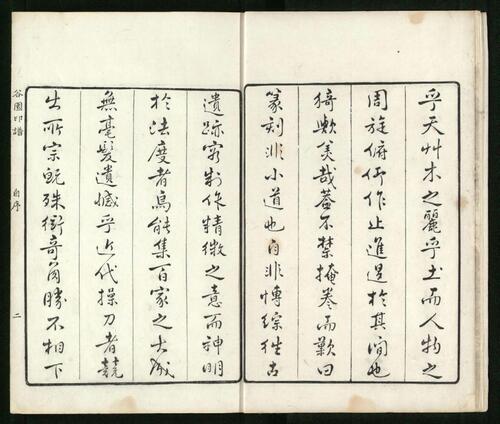 乎天艸木之麗乎土而人物之
周旋俯仰作止進退於其間也
猗歟美哉蓋不禁掩卷而歎曰
篆刻非小道也自非博綜往古
遺跡窮制作精微之意而神明
於法度者焉能集百家之大成
無毫髮遺憾乎近代操刀者競
出所宗既殊衒奇角勝不相下
谷園印譜
自序
二